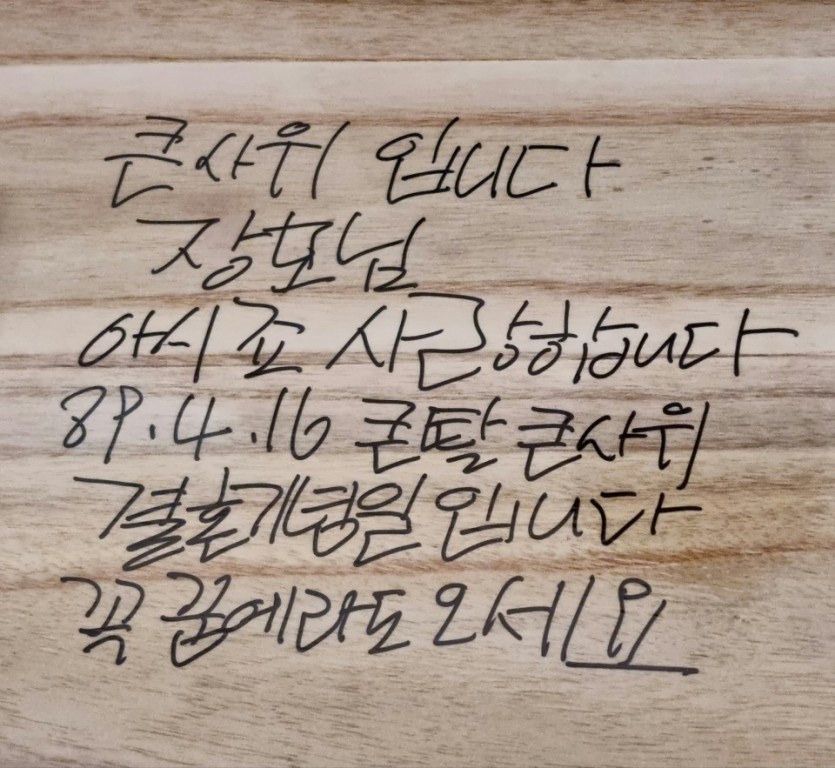 큰사위 입니다
장모님
아시죠 사랑합니다
89.4.16 큰딸 큰사위
결혼기념일 입니다
꼭 꿈에라도 오세요